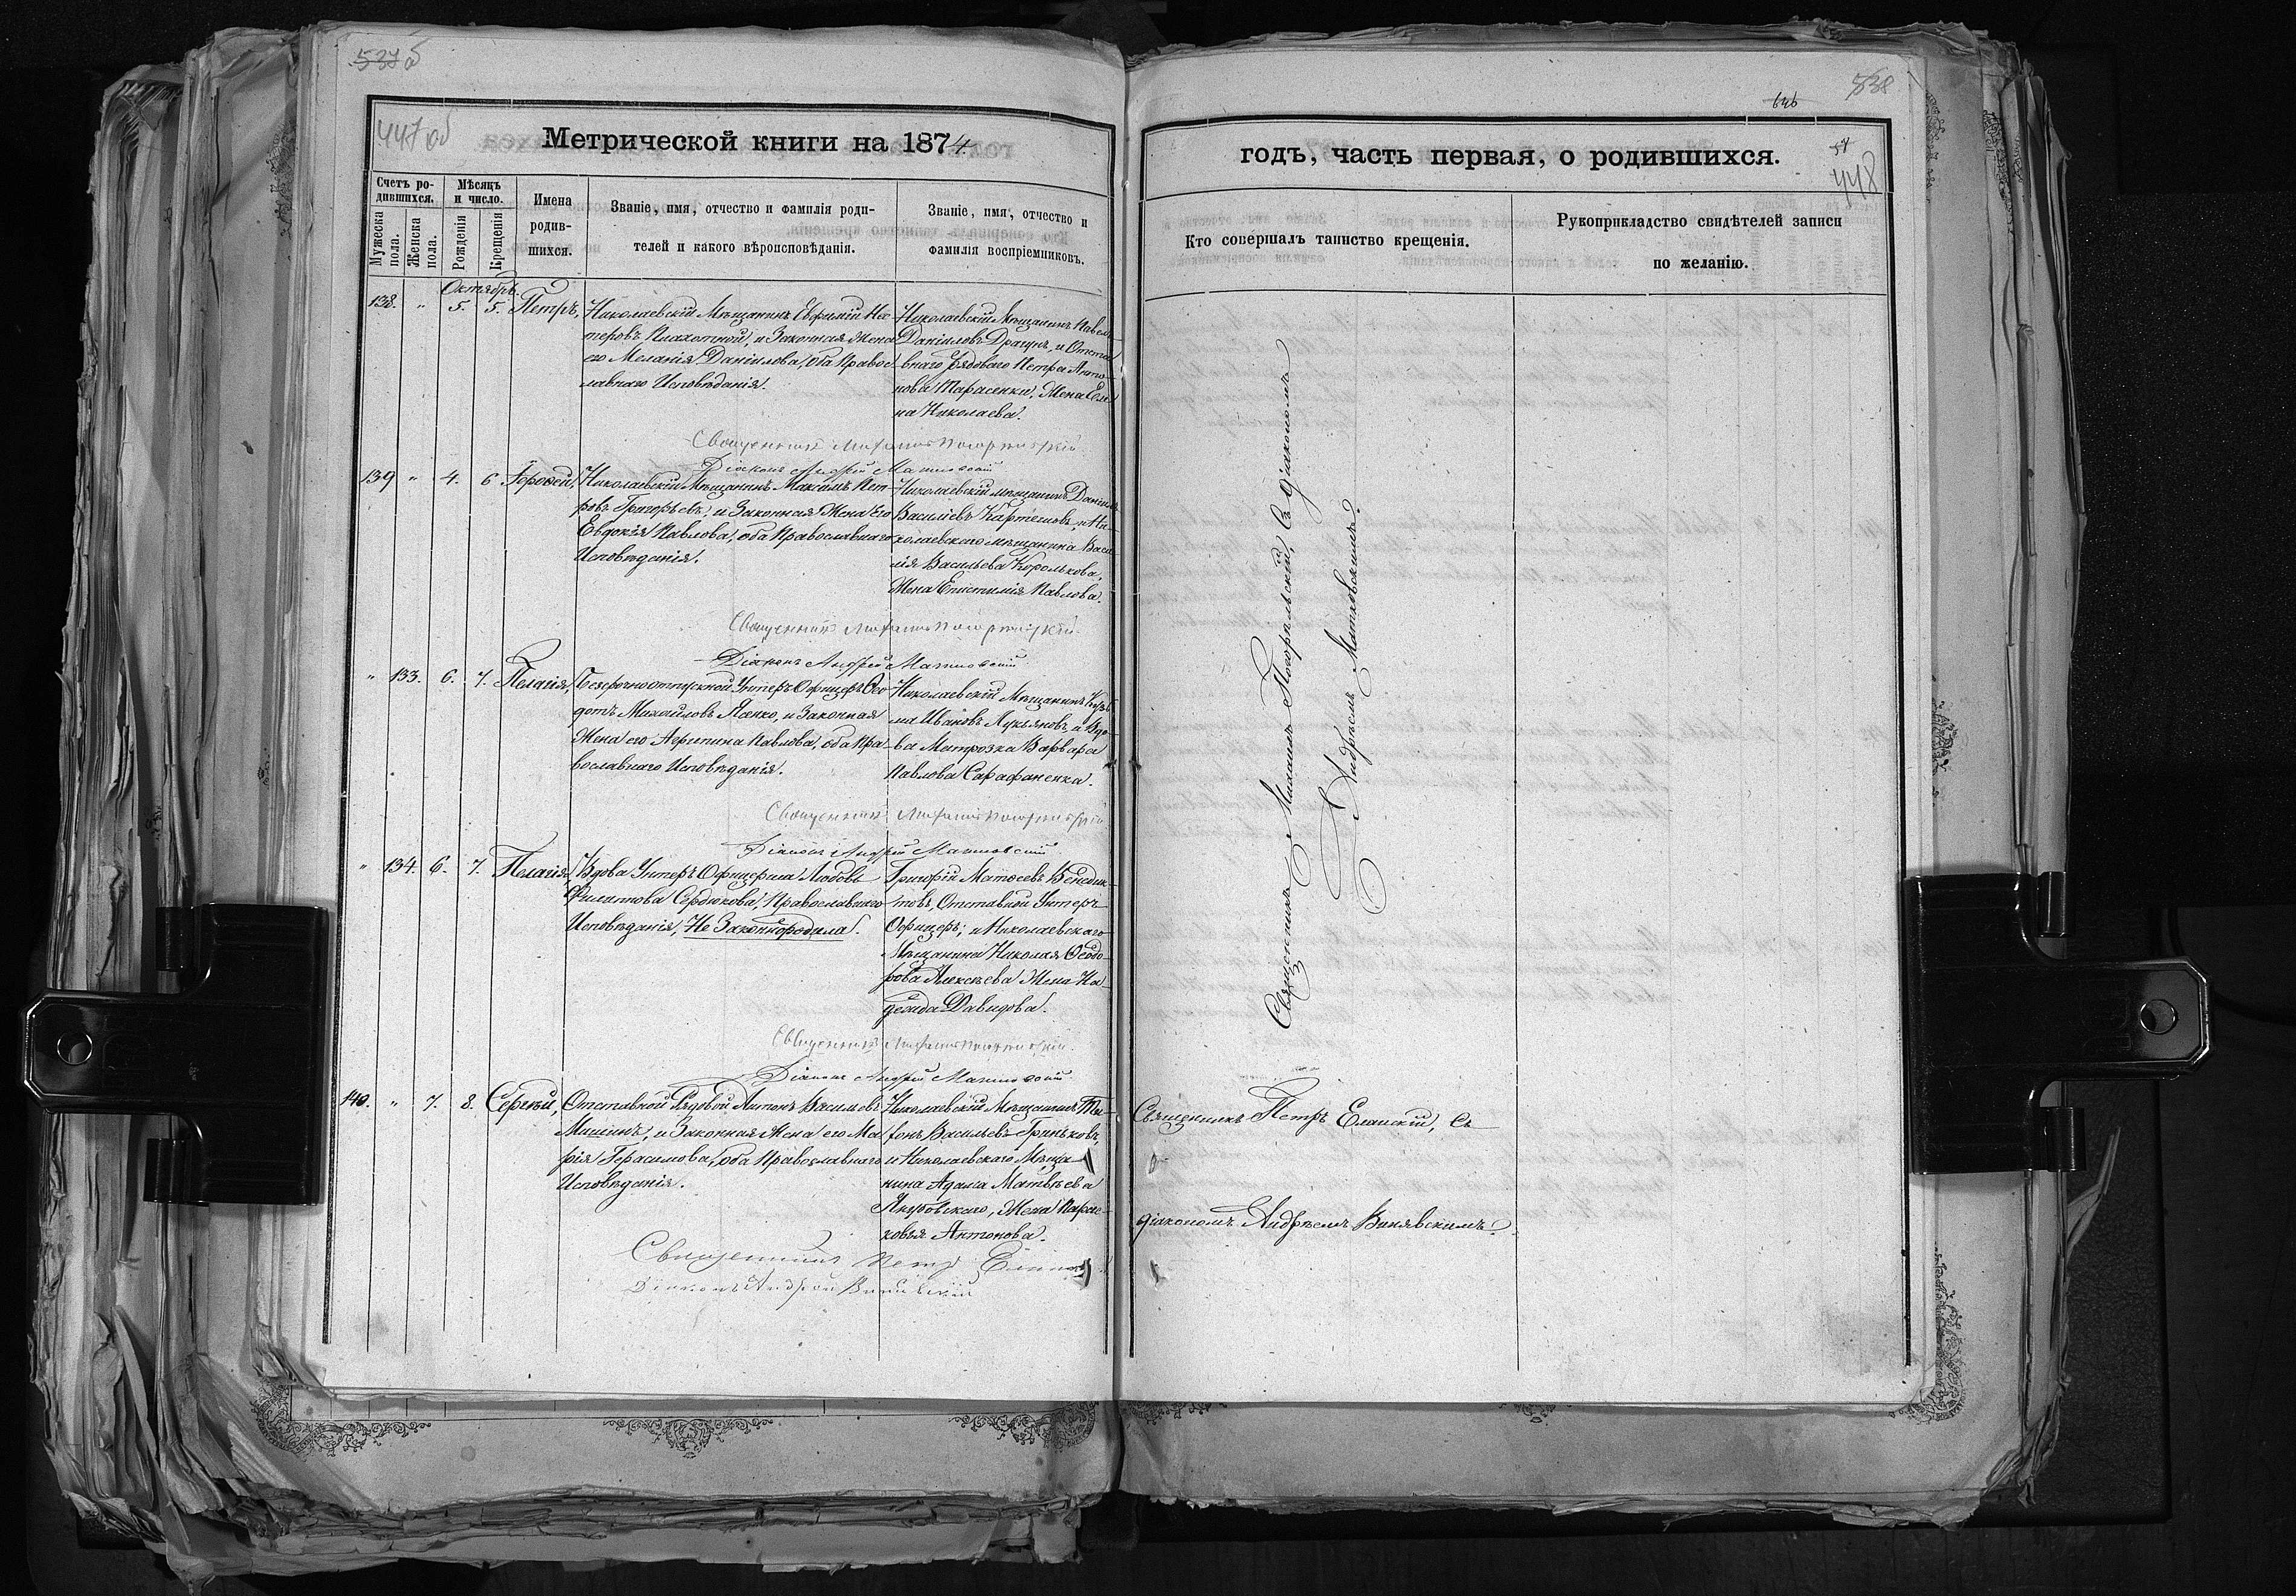 537 б
447 об
Метрической книги на 1874
Счетъ родившихся.
Мужеска пола.
Женска пола.
Мѣсяцъ и число.
Рожденія
Крещенія
Имена родившихся.
Званіе, имя, отчество и фамилія родителей и какого вѣроисповѣданія.
Званіе, имя, отчество и фамилія воспріемниковъ.
Октябрь.
138. " 5. 5. Петръ,
Николаевскій Мѣщанинъ Евфимій Нес-
теровъ Плахотной, и Законная Жена
его Меланія Даніилова, оба Правос-
лавнаго Исповѣданія.
Николаевскій Мѣщанинъ Павелъ
Даніиловъ Драгунъ, и Отста-
внаго Рядоваго Петра Анто-
нова Тарасенки, Жена Еле-
на Николаева.
Священникъ Михаилъ Погорѣльскій
Діаконъ Андрей Матковскій
139 " 4. 6 Ѳероѳей,
Николаевскій Мѣщанинъ Максимъ Пет-
ровъ Григорьевъ, и Законная Жена его
Евдокія Павлова, оба Православнаго
Исповѣданія.
Николаевскій мѣщанинъ Даніилъ
Василіевъ Картешовъ, и Ни-
колаевскаго мѣщанина Васи-
лія Васильева Королькова,
Жена Епистимія Павлова.
Священникъ Михаилъ Погорѣльскій
Діаконъ Андрей Матковскій
" 133. 6. 7. Пелагія,
Безсрочноотпускной Унтеръ Офицеръ Ѳео-
дотъ Михайловъ Ясенко, и Законная
Жена его Агрипина Павлова, оба Пра-
вославнаго Исповѣданія.
Николаевскій Мѣщанинъ Козь-
ма Ивановъ Лукьяновъ, и Вдо-
ва Матрозка Варвара
Павлова Сарафаненка.
Священникъ Михаилъ Погорѣльскій
Діаконъ Андрей Матковскій
" 134. 6. 7. Пелагія,
Вдова Унтеръ Офицерша Любовь
Филиппова Сердюкова, Православнаго
Исповѣданія, Не Законнородила.
Григорій Матѳеевъ Бенедик-
товъ, Отставной Унтеръ
Офицеръ; и Николаевскаго
Мѣщанина Николая Ѳеодо-
рова Алексѣева Жена На-
дежда Давидова.
Священникъ Михаилъ Погорѣльскій
Діаконъ Андрей Матковскій
140. " 7. 8. Сергѣй,
Отставной Рядовой Антонъ Васильевъ
Мишинъ, и Законная Жена его Ма-
рія Герасимова, оба Православнаго
Исповѣданія.
Николаевскій Мѣщанинъ Ти-
фонъ Васильевъ Гриньковъ,
и Николаевскаго Мѣща-
нина Адама Матвѣева
Якубовскаго, Жена Парас-
ковья Антонова.
Священникъ Петръ Еланскій
Діаконъ Андрей Винявскій
646
538
54
448
годъ, часть первая, о родившихся.
Кто совершалъ таинство крещенія.
Рукоприкладство свидѣтелей записи по желанію.
Священникъ Михаилъ Погорѣльскій, съ діакономъ
Андреемъ Матковскимъ.
Священникъ Петръ Еланскій, съ
діакономъ Андреемъ Винявскимъ.